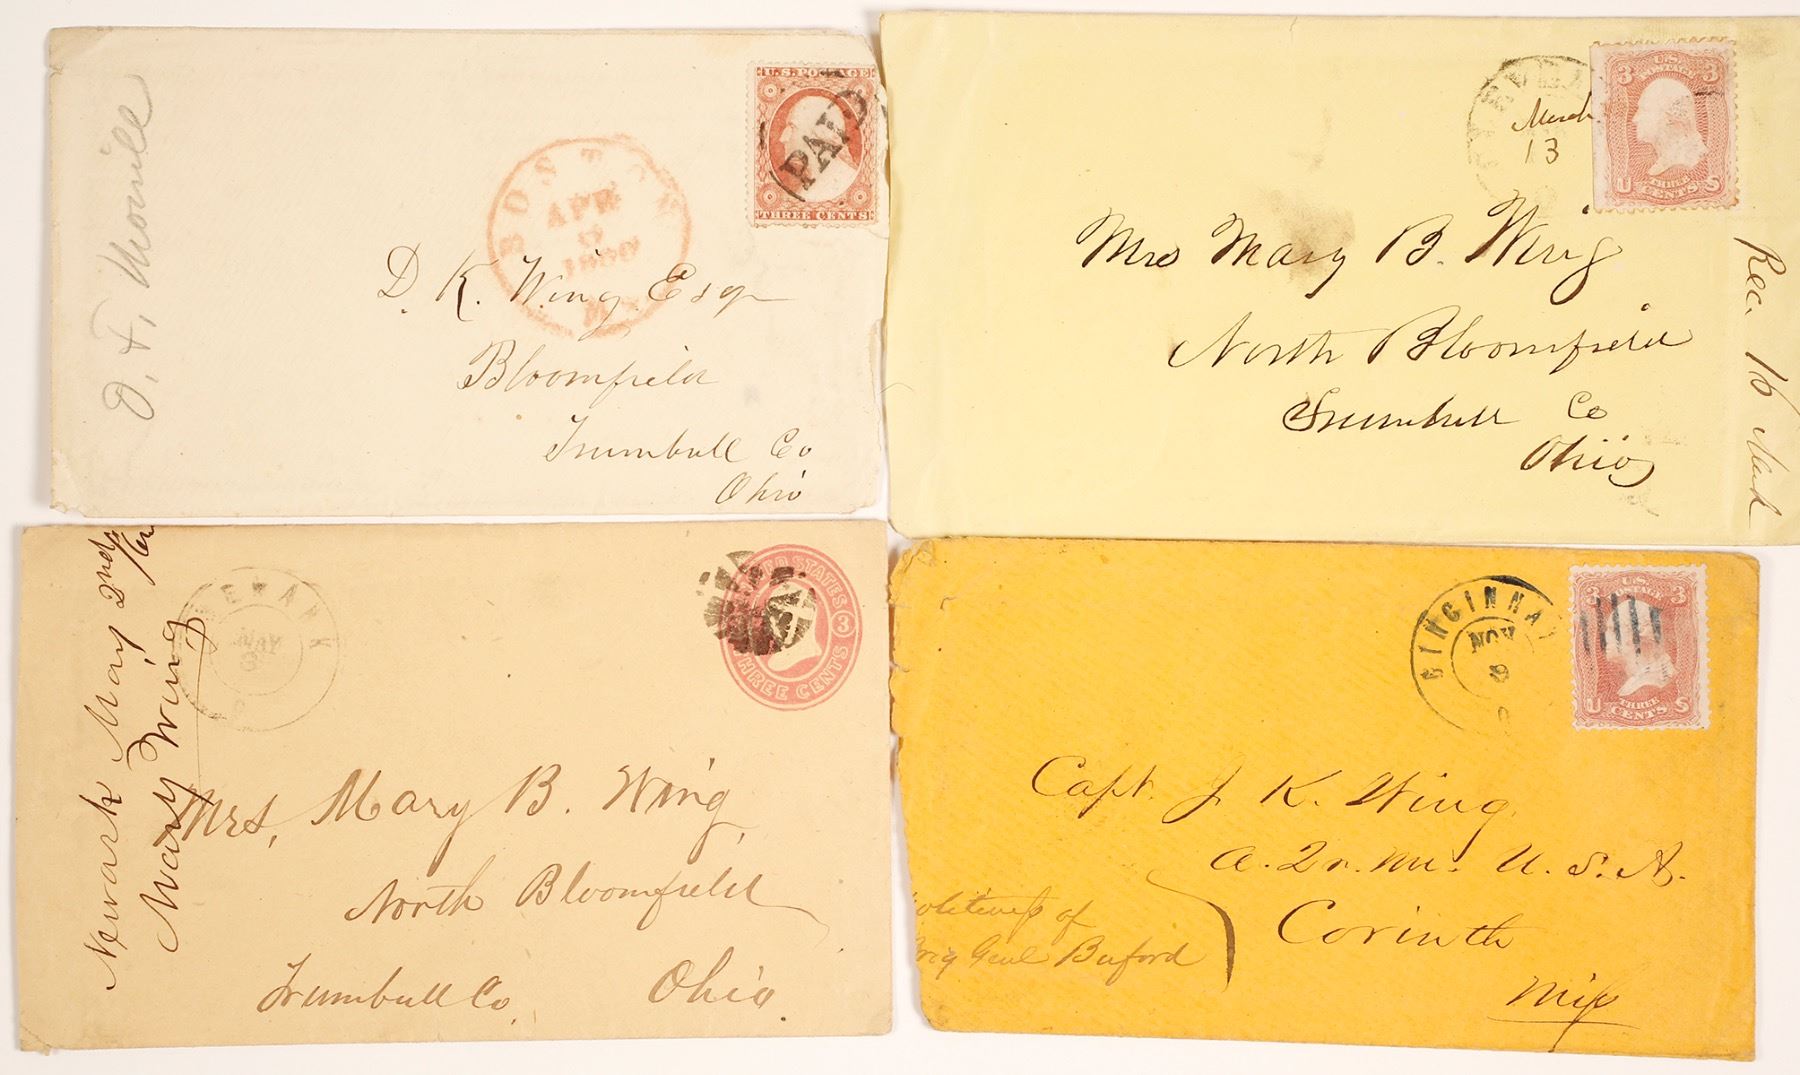 O. F. Morrill
U.S. POSTAGE
THREE CENTS
PAID
BOSTON
APR
1860
D. K. Wing Esqr
Bloomfield
Trumbull Co
Ohio
March
13
3 U.S. 3
POSTAGE
THREE
U CENTS S
Mrs Mary B. Wing
North Bloomfield
Trumbull Co
Ohio
Rec. 16 March
Newark May 2nd
Mary Wing
NEWARK
MAY
UNITED STATES
3
THREE CENTS
Mrs, Mary B. Wing,
North Bloomfield
Trumbull Co,
Ohio.
CINCINNAT
NOV
8
3 U.S. 3
POSTAGE
THREE
U CENTS S
Capt. J K. Wing,
A. Qr. Mr. U. S. A.
Corinth
Miss
politeness of
Brig Genl Buford